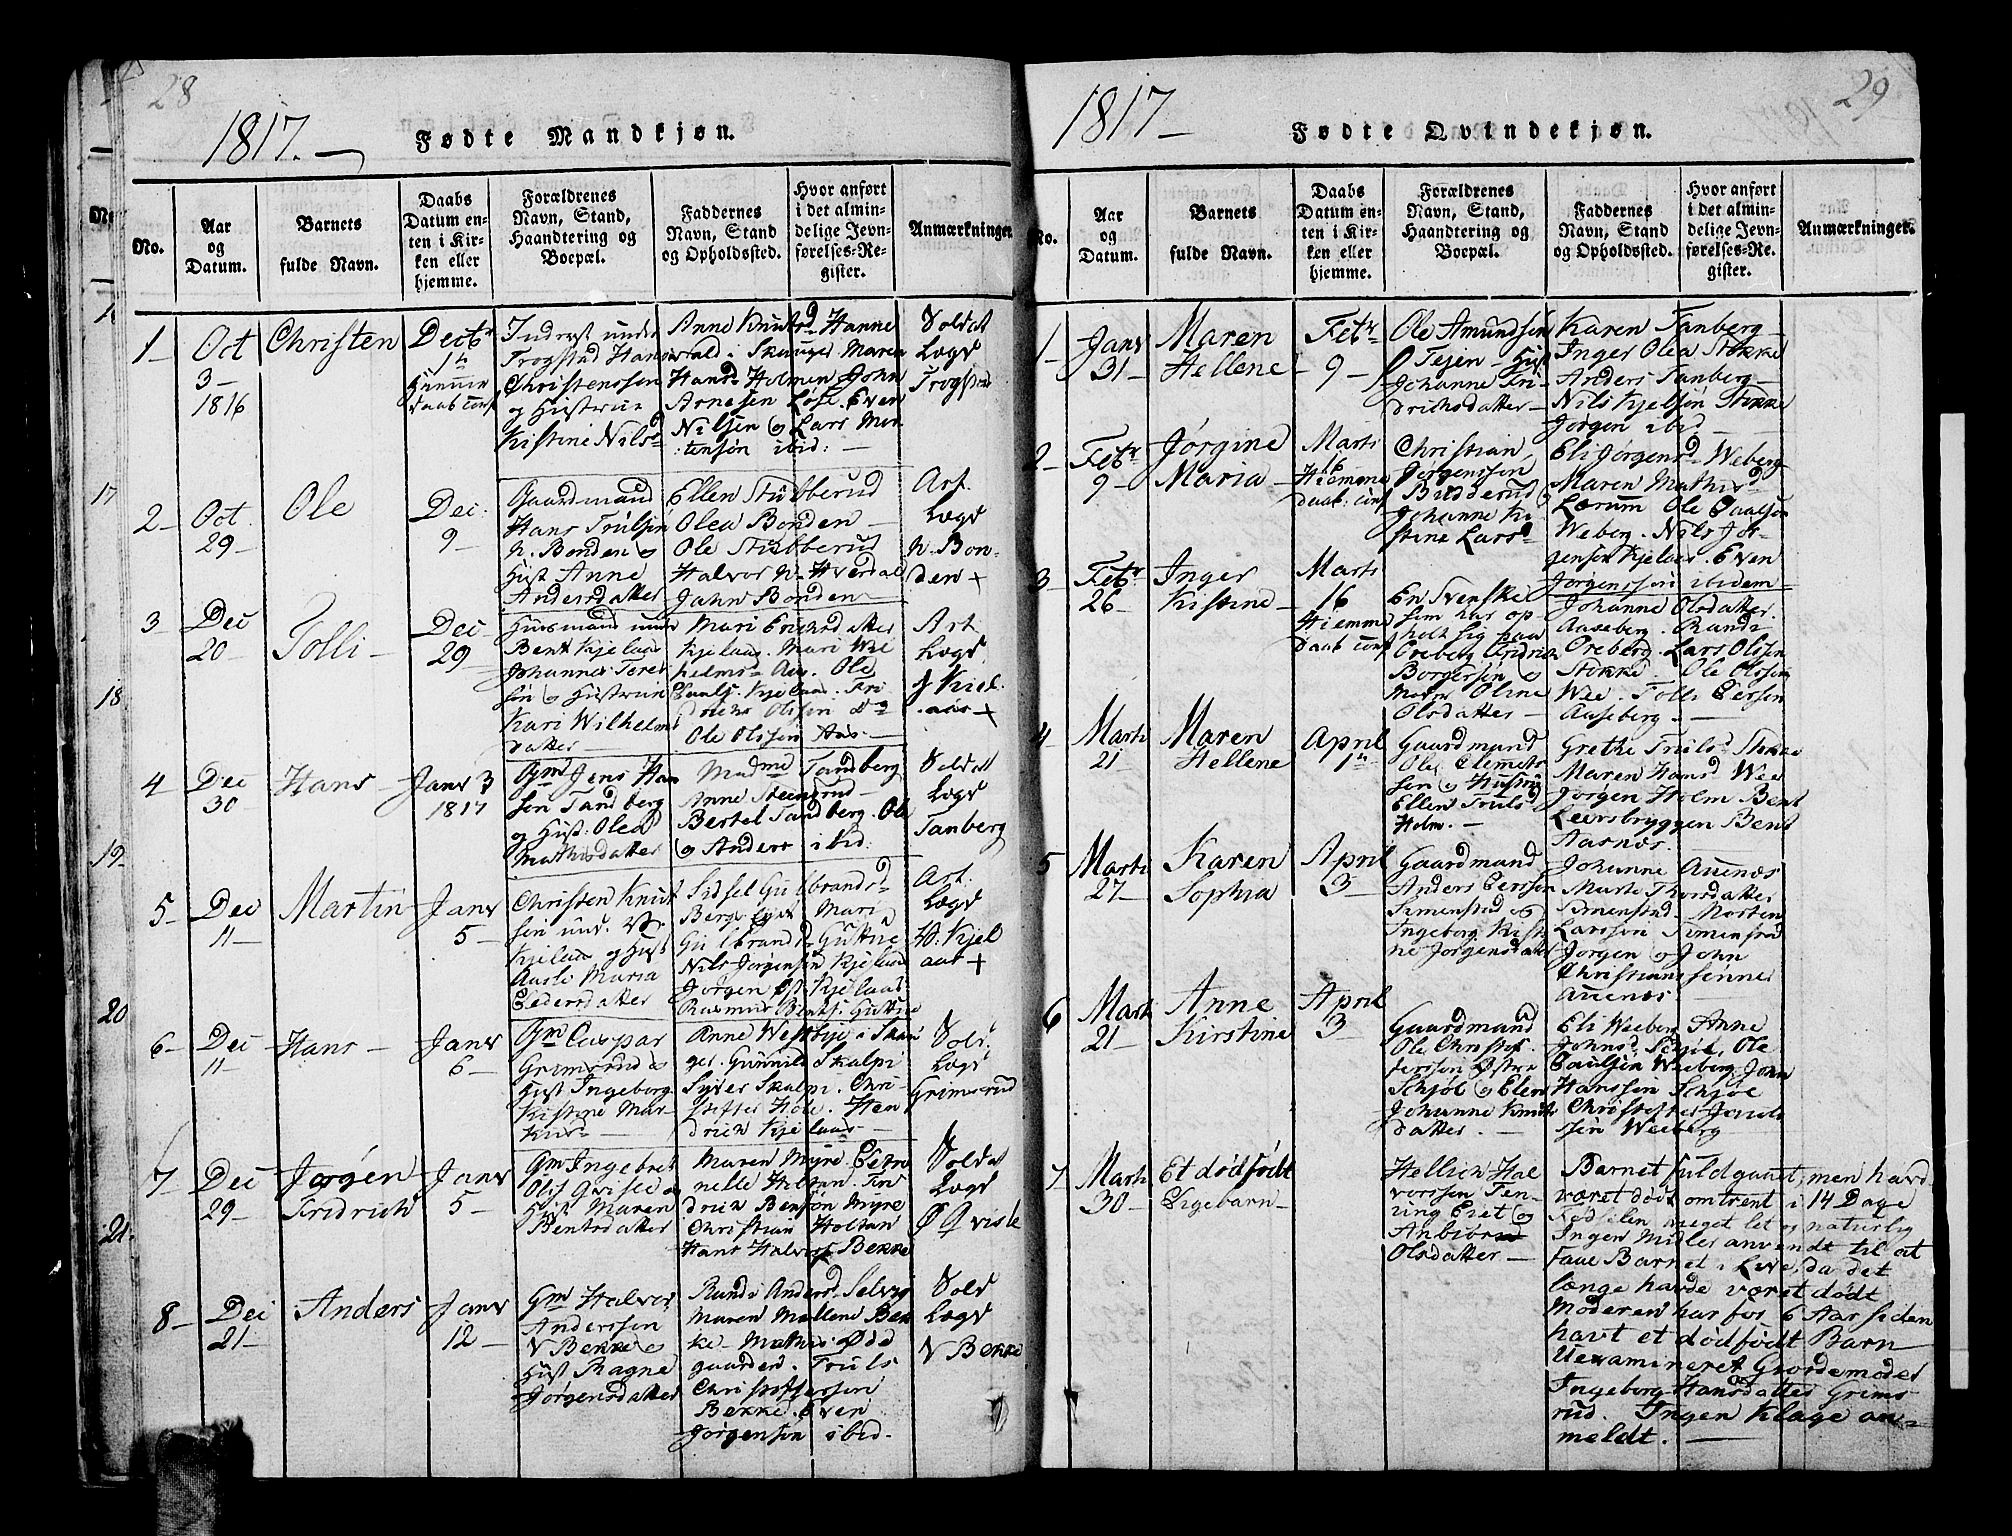 28
1817.
Fødte Mandkjøn.
No.
Aar
og
Datum.
Barnets
fulde Navn.
Daabs
Datum en-
ten i Kir-
ken eller
hjemme.
Forældrenes
Navn, Stand,
Haandtering og
Boepæl.
Faddernes
Navn, Stand
og Opholdssted.
Hvor anført
i det almin-
delige Jevn-
førelses-Re-
gister.
Anmærkninger
1
Oct
3
1816
Christen
Decbr
1
Hiemme
daab conf
Inderst under
Trogstad Hans
Christenssen
og Hustrue
Kistine Nilsd
Anne Knutsd Hanne
vald. Skauger Maren
Hansd Holmen John
Arnesen Lose. Even
Nilsen og Lars Mor
tensøn ibid:
Soldat
Lægd
Trogstad
2
Oct
29
Ole
Dec:
9
Gaardmand
Hans Trulsen
n. Bonden og
Hust Anne
Andersdatter
Ellen Stubberud
Olea Bonden
Ole Stubberud
Halvor n. Hverdal
John Bonden
Art.
Lægd
n. Bon-
den +
3
Dec
20
Tolli
Dec
29
Huusmand under
Bent Kjelaas
Johannes Peter
sen og Hustrue
Kari Wilhelms
datter
Mari Erichsdatter
Kjelaas. Mari Wil
helmsd Aas. Ole
Pauls. Kjelaas. Fri
drich Olssen do
Ole Olssen Aas.
Art
Lægd
f Kiel.
aas +
4
Dec
30
Hans
Janv 3
1817
Gm Jens Han
sen Tandberg
og Hust: Olea
Mathisdatter
Madme Tandberg
Anne Steensrud
Bertel Tandberg. Ole
og Anders ibid:
Soldat
Lægd
Tanberg
5
Dec
11
Martin
Janv
5
Christen Knut
sen und.
Kjelaas og Hust
Aasli Maria
Pedersdatter
Sidsel Gulbrandsd.
Berg. Mari
Gulbrandsd Guttue
Nils Jørgensen Kjelaas
Jørgen Kjelaas
Rasmus Bents. Guttue
Art.
Lægd
Kjel
aas +
6
Dec
11
Hans
Janv
6
Gm Caspar
Grimsrud og
Hust Ingeborg
Kistine Mar-
kusd
Anne Westbye. Skau
ger. Gunnild Skalpi
Syver Skalpi. Chri-
stoffer Hole. Hen
drich Kjelaas
Sold.
Lægd
Grimsrud
7
Dec
29
Jørgen
Fridrich
Janv
5
Gm Ingebret
Olss Qvisle og
Hust Maren
Bentsdatter
Maren Myre Petro
nelle Holtan. Fri
drich Bensøn Myre
Christian Holtan
Hans Halvors Bekke
Soldat
Lægd
Ø Qvisle
8
Dec
21
Anders
Janv
12
Gm Halvor
Anderssen
V Bekke og
Hust Ragne
Jørgensdatter
Randi Andersd. Selvig
Maren Mallene Bek
ke. Mathis Øde
gaarden. Truls
Christoffersen
Bekke. Even
Jørgensøn ibid.
Sold
Lægd
V Bekke
29
1817
Fødte Qvindekjøn.
No.
Aar
og
Datum.
Barnets
fulde Navn.
Daabs
Datum en-
ten i Kir-
ken eller
hjemme.
Forældrenes
Navn, Stand,
Haandtering og
Boepæl.
Faddernes
Navn, Stand
og Opholdssted.
Hvor anført
i det almin-
delige Jevn-
førelses-Re-
gister.
Anmærkninger.
1
Janv
31
Maren
Hellene
Febr
9
Ole Amundsen
Tejen Hust
Johanne Fri-
drichsdatter
Karen Tanberg
Inger Olea Stokke
Anders Tanberg
Nils Kjelsøn Stokke
Jørgen ibid
2
Febr
9
Jørgine
Maria
Marti
16
Hiemme
daab: conf
Christian
Jørgenssen
Budderud og
Johanne Ki-
stine Larsd
Eli Jørgensd Weberg
Maren Mathisd
Lærum Ole Paulsøn
Weberg. Nils Jør-
gensen Kjelaas. Even
Jørgenssen ibidem
3
Febr
26
Inger
Kistine
Marti
16
Hiemme
daab conf
En Svenske
som har op
holt sig paa
Oreberg Fridrich
Borgersen og
Moder Oline
Olsdatter
Johanne Olsdatter
Aaseberg. Randi
Oreberg. Lars Olssen
Stokke Ole Olssen
Wee. Tolli Perssen
Aaseberg.
4
Marti
21
Maren
Hellene
April
1
Gaardmand
Ole Clemets
sen og Hustrue
Ellen Trulsd
Holm.
Grethe Trulsd. Stokke
Maren Hansd Wee
Jørgen Holm Bent
Leersbryggen Bent
Aasnæs.
5
Marti
27
Karen
Sophia
April
3
Gaardmand
Anders Perssen
Simenstad og
Ingeborg Kisti
ne Jørgensdatter
Johanne Auenæs
Marte Thorsdatter
Simenstad Morten
Larssen Simenstad
Jørgen og John
Christianssønner
Auenæs
6
Marti
21
Anne
Kirstine
April
3
Gaardmand
Ole Christof
fersen Østre
Schjøl og Elen
Johanne Knuts
datter.
Eli Weeberg Anne
Johnsd. Schjøl, Ole
Paulsen Weeberg John
Hanssen Schjøl
Christoffer Jons
sen Weeberg
7
Marti
30
Et dødfødt
Pigebarn
Hellich Hal
vorssen Fen-
ring Eiet og
Anbiør
Olsdatter
Barnet fuldgaaet, men havde
været dødt omtrent i 14 Dage
Fødselen meget let og naturlig
Ingen Midler anvendt til at
faae Barnet i Live, da det
længe havde været dødt
Moderen har for 6 Aar siden
havt et dødfødt Barn
Uexamineret Giordemoder
Ingeborg Hansdatter Grims
rud. Ingen Klage an-
meldt.
17
18
19
20
21.